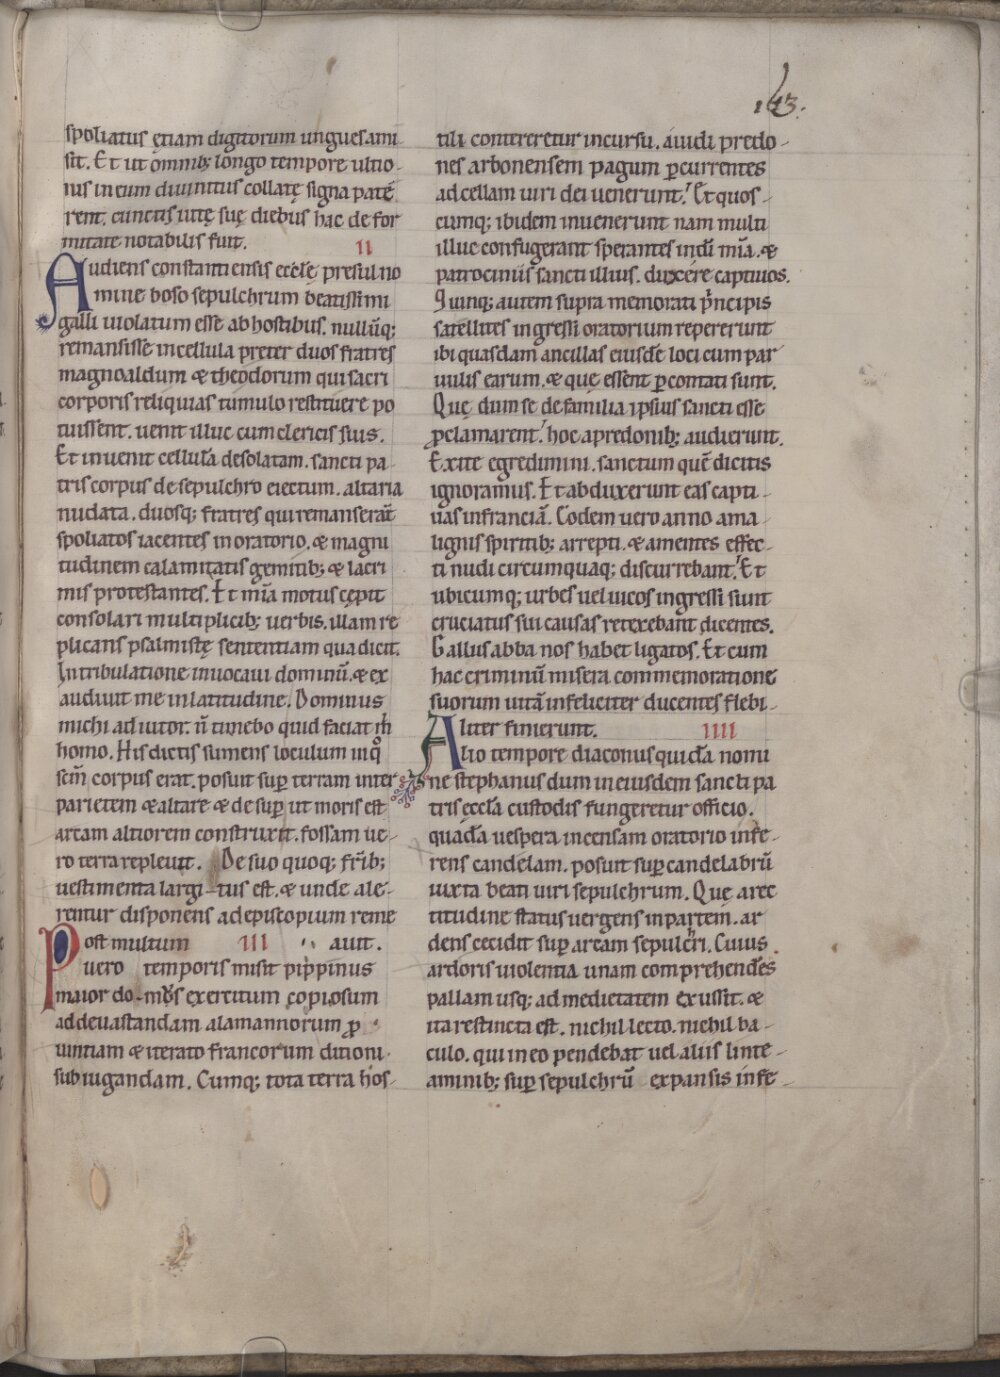 163.
spoliatus etiam digitorum ungues ami
sit. Et ut omnibꝫ longo tempore ultio-
nis in eum diuinitus collatę signa patē
rent. cunctis uitę suę diebus hac de for
mitate notabilis fuit. II
Audiens constantiensis eccl̄e presul no
mine boso sepulchrum beatissimi
galli uiolatum esse ab hostibus. nullūqꝫ
remansisse in cellula preter duos fratres
magnoaldum & theodorum qui sacri
corporis reliquias tumulo restituere po
tuissent. uenit illuc cum clericis suis.
Et inuenit cellulā desolatam. sancti pa
tris corpus de sepulchro eiectum. altaria
nudata. duosqꝫ fratres qui remanserāt
spoliatos iacentes in oratorio. & magni
tudinem calamitatis gemitibꝫ & lacri
mis protestantes. Et mīa motus cępit
consolari multiplicibꝫ uerbis. illam re
plicans psalmistę sententiam qua dicit.
In tribulatione inuocaui dominū. & ex
audiuit me in latitudine. Dominus
michi adiutor. ñ timebo quid faciat m̄
homo. His dictis sumens loculum in q̊
sc̄m corpus erat. posuit suꝑ terram inter
parietem & altare & de suꝑ ut moris est
arcam altiorem construxit. fossam ue-
ro terra repleuit. De suo quoqꝫ fr̄ibꝫ
uestimenta largi-tus est. & unde ale-
rentur disponens ad episcopium reme
Post multum III auit.
uero temporis misit pippinus
maior do-mꝰs exercitum copiosum
ad deuastandam alamannorum ꝓ
uintiam & iterato francorum ditioni-
subiugandam. Cumqꝫ tota terra hos-
tili contereretur incursu. auidi predo-
nes arbonensem pagum ꝑcurrentes
ad cellam uiri dei uenerunt. Et quos-
cumqꝫ ibidem inuenerunt nam multi
illuc confugerant sperantes in dī mīa. &
patrociniis sancti illius. duxere captiuos.
Quinqꝫ autem supra memorati p̄ncipis
satellites ingressi oratorium repererunt
ibi quasdam ancillas eiusdē loci cum par
uulis earum. & que essent ꝑcontati sunt.
Quę dum se de familia ipsius sancti esse
ꝓclamarent. hoc a predonibꝫ audierunt.
Exite egredimini. sanctum quē dicitis
ignoramus. Et abduxerunt eas capti-
uas in franciā. Eodem uero anno a ma
lignis spiritibꝫ arrepti. & amentes effec-
ti nudi circumquaqꝫ discurrebant. Et
ubicumqꝫ urbes uel uicos ingressi sunt
cruciatus sui causas retexebant dicentes.
Gallus abba nos habet ligatos. Et cum
hac criminū misera commemoratione
suorum uitā infeliciter ducentes flebi-
liter finierunt. IIII
Alio tempore diaconus quidā nomi
ne stephanus dum in eiusdem sancti pa
tris eccl̄a custodis fungeretur officio.
quadā uespera incensam oratorio infe-
rens candelam. posuit suꝑ candelabrū
iuxta beati uiri sepulchrum. Que a rec
titudine status uergens in partem. ar
dens cecidit suꝑ arcam sepulcri. Cuius
ardoris uiolentia unam comprehendēs
pallam usqꝫ ad medietatem exussit. &
ita restincta est. nichil lecto. nichil ba-
culo. qui in eo pendebat uel aliis linte-
aminibꝫ suꝑ sepulchrū expansis infe-